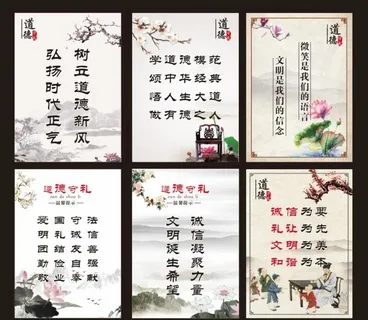 道德
树立道德新风
弘扬时代正气
道德
学道德模范
颂中华经典
悟人生大道
做有德之人
道德
微笑是我们的语言
文明是我们的信念
道德守礼
爱国守法
明礼诚信
团结友善
勤俭自强
敬业奉献
道德守礼
诚信凝聚力量
文明诞生希望
道德
诚信为要
礼让为先
文明为美
和谐为本